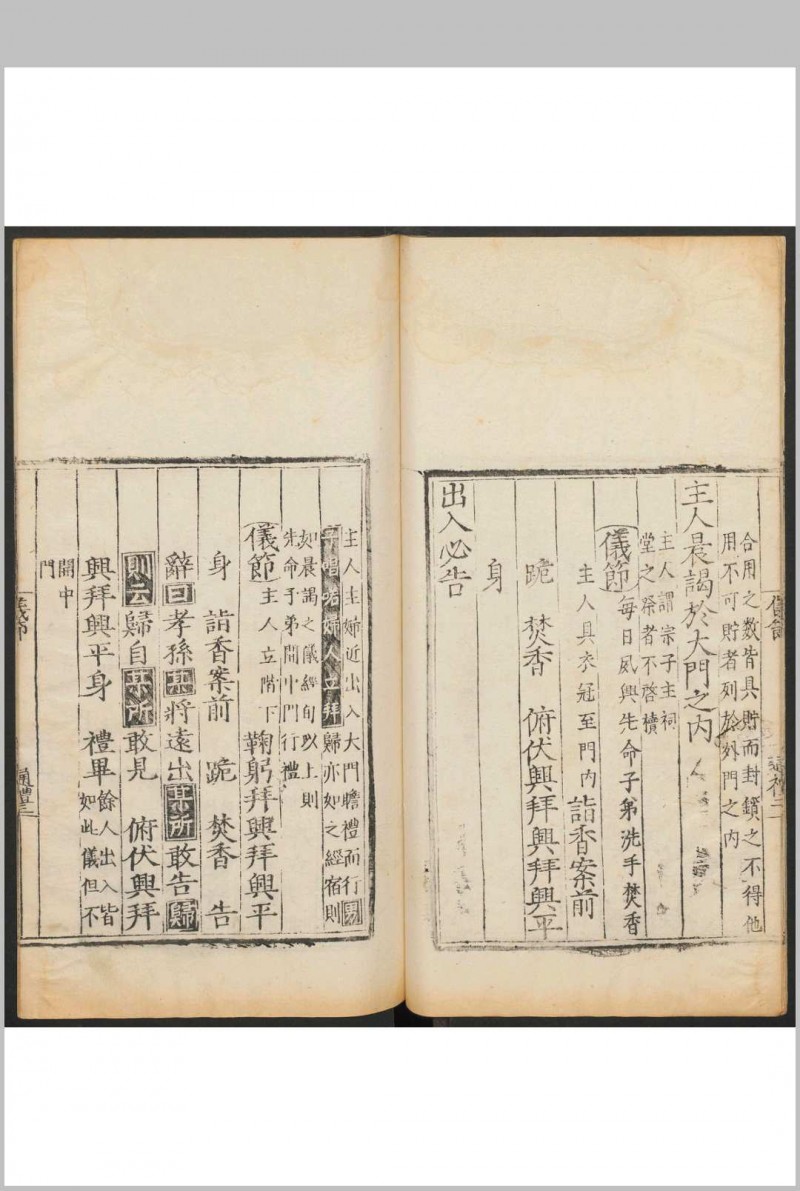 合用之數皆具貯而封鎖之不得他
用不可貯者列於外門之内
主人晨謁於大門之内
主人謂宗子主祠
堂之祭者不啓櫝
儀節 每日夙興先命子弟洗手焚香
主人具衣冠至門内 詣香案前
跪 焚香 俯伏興拜興拜興平
身
出入必告
主人主婦近出入大門瞻禮而行男
子唱喏婦人立拜歸亦如之經宿則
如晨謁之儀經旬以上則
先命子弟開中門行禮
儀節 主人立階下 鞠躬拜興拜興平
身 詣香案前 跪 焚香 告
辭曰孝孫某將遠出某所敢告歸
則云歸自某所敢見 俯伏興拜
興拜興平身 禮畢 餘人出入皆
如此儀但不
開中
門
通禮三